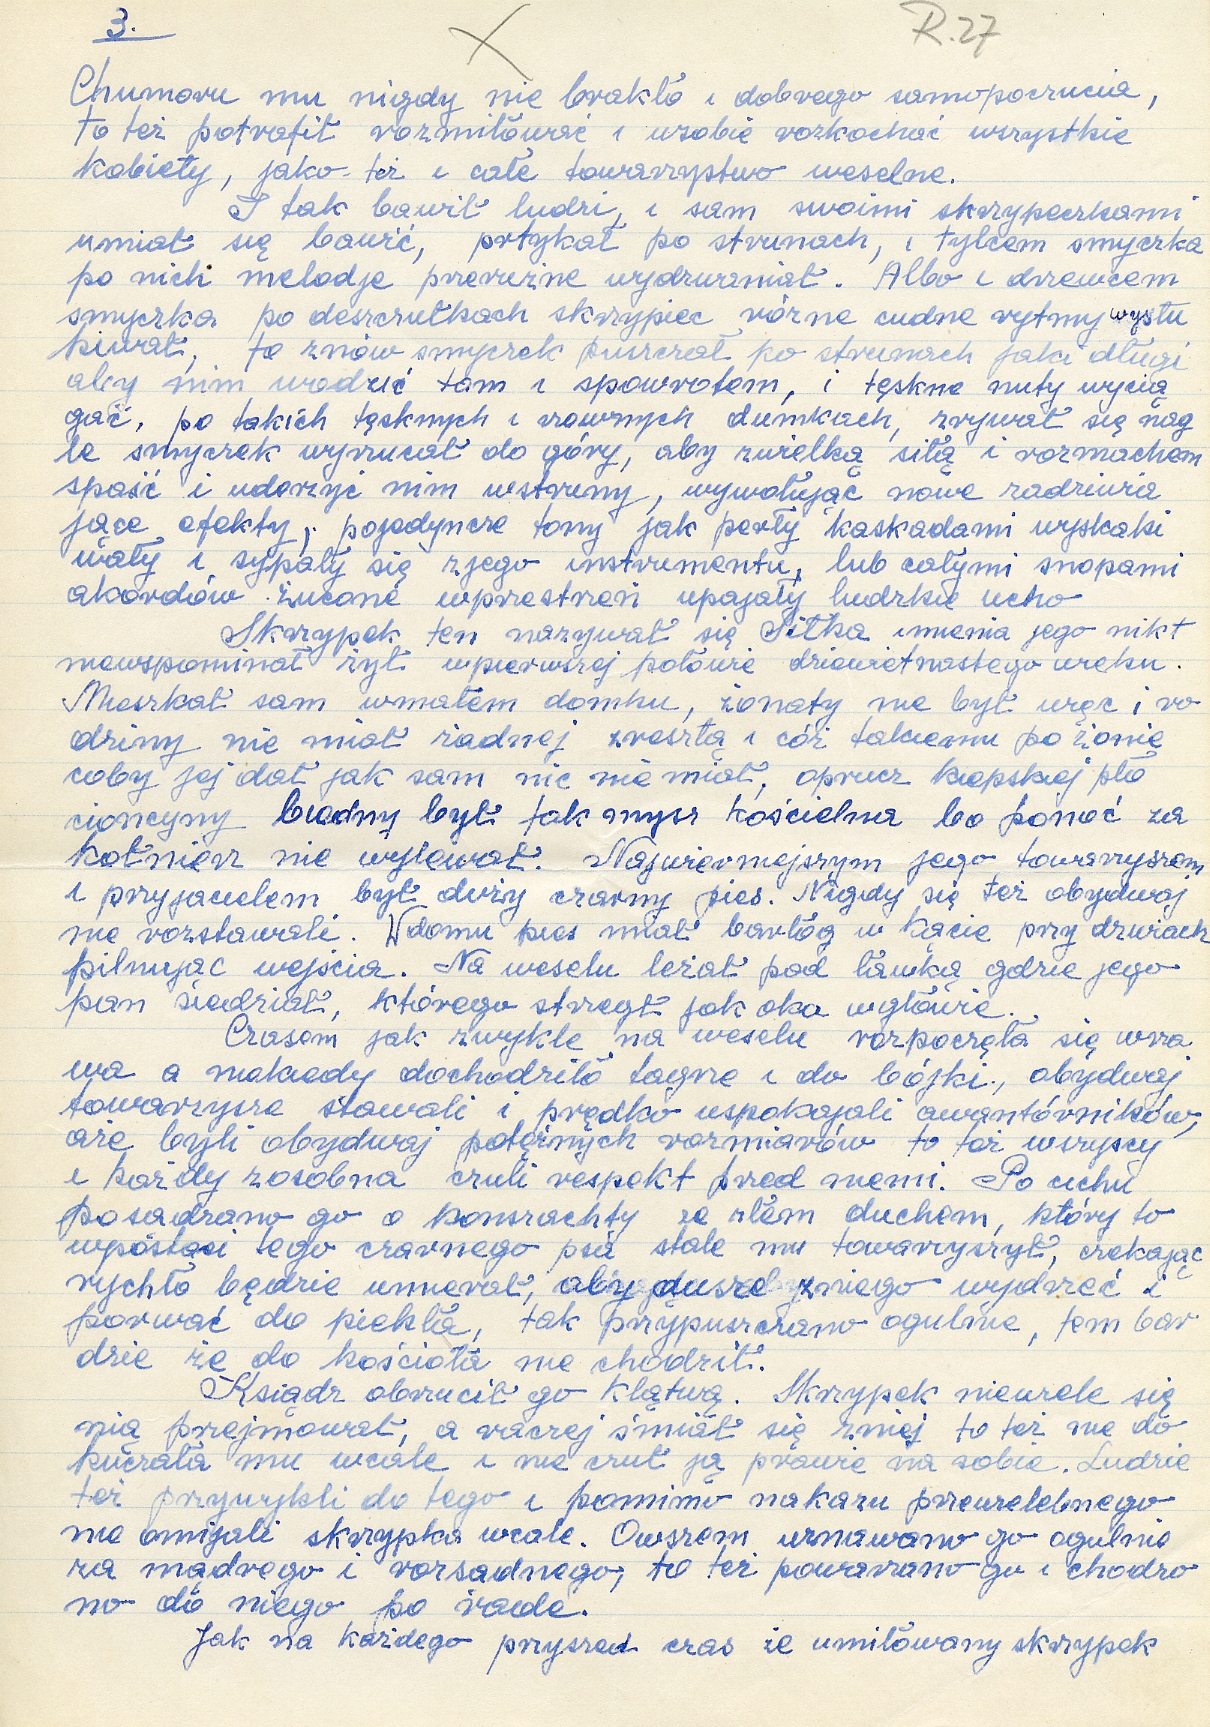 3.
R.27
Chumoru mu nigdy nie brakło i dobrego samopoczucia,
to też potrafił rozmiłować i wsobie rozkochać wszystkie
kobiety, jako-też i całe towarzystwo weselne.
I tak bawił ludzi, i sam swoimi skrzypeczkami
umiał się bawić, prtykał po strunach, i tylcem smyczka
po nich melodje przeruzne wydzwaniał. Albo i drzewcem
smyczka po deszczułkach skrzypiec różne cudne rytmy wystu
kiwał, to znów smyczek puszczał po strunach jaki długi
aby nim wodzić tam i spowrotem, i tęskne nuty wycią
gać, po takich tęsknych i rzewnych dumkach, zrywał się nag
le smyczek wyrzucał do góry, aby zwielką siłą i rozmachem
spaść i uderzyć nim wstruny, wywołująć nowe zadziwia
jące efekty, pojedyncze tony jak perły kaskadami wyskaki
wały i sypały się zjego instrumentu, lub całymi snopami
akordów żucone wprzestrzeń upajały ludzkie ucho
Skrzypek ten nazywał się Sitka imienia jego nikt
niewspominał żył wpierwszej połowie dziewietnastego wieku.
Mieszkał sam wmałem domku, żonaty nie był więc i ro
dziny nie miał żadnej zresztą i cóż takiemu po żonie
coby jej dał jak sam nic nie miał, oprucz kiepskiej płó
cionczyny biedny był tak mysz kościelna bo ponoć za
kołnierz nie wylewał. Najwierniejszym jego towarzyszem
i przyjacielem był duży czarny pies. Nigdy się też obydwaj
nie rozstawali. Wdomu pies miał barłóg w kącie przy drzwiach
pilnując wejścia. Na weselu leżał pod ławką gdzie jego
pan siedział, którego strzegł jak oka wgłowie.
Czasem jak zwykle na weselu rozpoczęła się wrza
wa a niekiedy dochodziło tagze i do bójki, obydwaj
towarzysze stawali i prędko uspokajali awantórników,
aże byli obydwaj potężnych rozmiarów to też wszyscy
i każdy zosobna czuli respekt przed niemi. Po cichu
posadzano go o konszachty ze złem duchem, który to
wpostaci tego czarnego psa stale mu towarzyszył, czekając
rychło będzie umierał, aby dusze zniego wydrzeć i
porwać do piekła, tak przypuszczano ogulnie, tem bar
dzie że do kościoła nie chodził.
Ksiądz obrzucił go klątwą. Skrzypek niewiele się
nią przejmował, a raczej śmiał się zniej to też nie do
kuczała mu wcale i nie czuł ją prawie na sobie. Ludzie
też przywykli do tego i pomimo nakazu przewielebnego
nie omijali skrzypka wcale. Owszem uznawano go ogulnie
za mądrego i rozsadnego, to też poważano go i chodzo
no do niego po rade.
Jak na każdego przyszed czas że umiłowany skrzypek